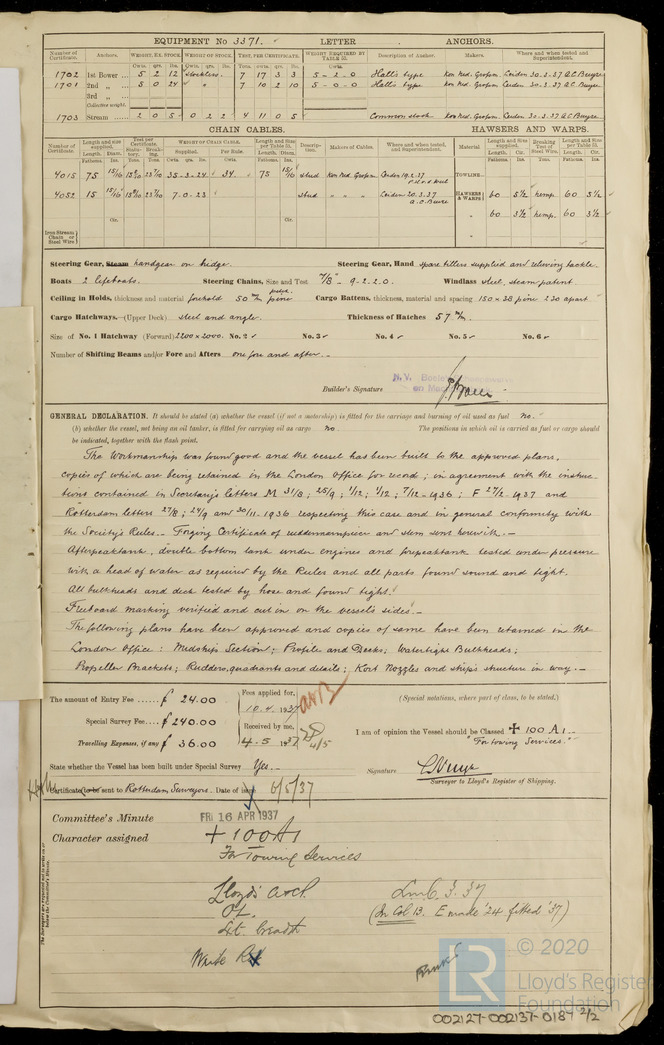 EQUIPMENT No 3371. LETTER . ANCHORS.
Number of Certificate. Anchors. WEIGHT, EX. STOCK. WEIGHT OF STOCK. TEST, PER CERTIFICATE. WEIGHT REQUIRED BY TABLE 31. Description of Anchor. Makers. Where and when tested and Superintendent.
Cwts. qrs. lbs. Cwts. qrs. lbs. Tons. cwts. qrs. lbs. Cwts.
1702 1st Bower 5 2 12 Stockless. 7 17 3 3 5-2-0 Hall's type Kon. Ned. Grofsm. Leiden 30.3.37 A.C. Buyse
1701 2nd „ 5 0 24 „ „ 7 10 2 10 5-0-0 Hall's type Kon Ned. Grofsm. Leiden 30.3.37 A.C. Buyse
3rd „
Collective weight.
1703 Stream 2 0 5 0 2 2 4 11 0 5 Common stock Kon Ned. Grofsm. Leiden 30.3.37 A.C. Buyse
CHAIN CABLES. HAWSERS AND WARPS.
Number of Certificate. Length and size supplied. Test per Certificate. WEIGHT OF CHAIN CABLE. Length and Size per Table 31. Description. Makers of Cables. Where and when tested, and Superintendent. Material Length and Size supplied. Breaking Test of Steel Wire. Length and Size per Table 31.
Length. Diam. Statutory. Breaking. Supplied. Per Rule. Length. Diam. Length. Cir. Length. Cir.
Fathoms. Ins. Tons. Tons. Cwts. qrs. lbs. Cwts. Fathoms. Ins. Fathoms. Ins. Tons. Fathoms. Ins.
4015 75 15/16 35-3-24 34. 75 15/16 stud Kon Ned Grofsm Leiden 19.2.37 TOWLINE
4052 15 15/16 7-0-23 stud „ „ „ Leiden 20.3.37 A.C. Buyse HAWSERS & WARPS 60 5½ hemp. 60 5½
„ 60 3½ hemp. 60 3½
Cir. Cir.
Iron Stream Chain or Steel Wire
Steering Gear, Steam handgear on bridge. Steering Gear, Hand spare tillers supplied and relieving tackle.
Boats 2 lifeboats. Steering Chains, Size and Test 7/8" - 9-2-2.0. Windlass steel, steam patent.
Ceiling in Holds, thickness and material forehold 50 m/m pine Cargo Battens, thickness, material and spacing 150 x 38 pine 230 apart.
Cargo Hatchways.—(Upper Deck) steel and angle. Thickness of Hatches 57 m/m.
Size of No. 1 Hatchway (Forward) 2200 x 2000. No. 2 No. 3 No. 4 No. 5 No. 6
Number of Shifting Beams and/or Fore and Afters one fore and after.
N.V.
Builder's Signature
GENERAL DECLARATION. It should be stated (a) whether the vessel (if not a motorship) is fitted for the carriage and burning of oil used as fuel no.
(b) whether the vessel, not being an oil tanker, is fitted for carrying oil as cargo no The positions in which oil is carried as fuel or cargo should
be indicated, together with the flash point.
The Workmanship was found good and the vessel has been built to the approved plans,
copies of which are being retained in the London Office for record; in agreement with the instruc-
tions contained in Secretary's letters M 31/8; 25/9; 1/12; 1/12; 7/12-1936; F 27/2-1937 and
Rotterdam letters 27/8; 24/9 and 30/11-1936 respecting this case and in general conformity with
the Society's Rules.— Forging Certificate of ruddermainpiece and stem sent herewith.—
Afterpeaktank, double bottom tank under engines and forepeaktank tested under pressure
with a head of water as required by the Rules and all parts found sound and tight.
All bulkheads and deck tested by hose and found tight.
Freeboard marking verified and cut in on the vessel's sides.—
The following plans have been approved and copies of same have been retained in the
London Office: Midship Section; Profile and Decks; Watertight Bulkheads;
Propeller Brackets; Rudders, quadrants and details; Kort Nozzles and ship's structure in way.—
The amount of Entry Fee £ 24.00 Fees applied for, 10.4.1937 (Special notations, where part of class, to be stated.)
Special Survey Fee £ 240.00 Received by me, I am of opinion the Vessel should be Classed + 100 A1.—
Travelling Expenses, if any £ 36.00 4.5.1937 4/5 "For towing Services."
State whether the Vessel has been built under Special Survey Yes.— Signature
Surveyor to Lloyd's Register of Shipping.
Certificate (to be) sent to Rotterdam Surveyors. Date of issue 6/5/37
Committee's Minute FRI 16 APR 1937
Character assigned + 100A1
For Towing Services
Lloyd's A&CP. LMC 3.37
(In Col 13. E made '24 fitted '37)
Write
© 2020
LR Lloyd's Register
Foundation
002127-002137-0187 2/2